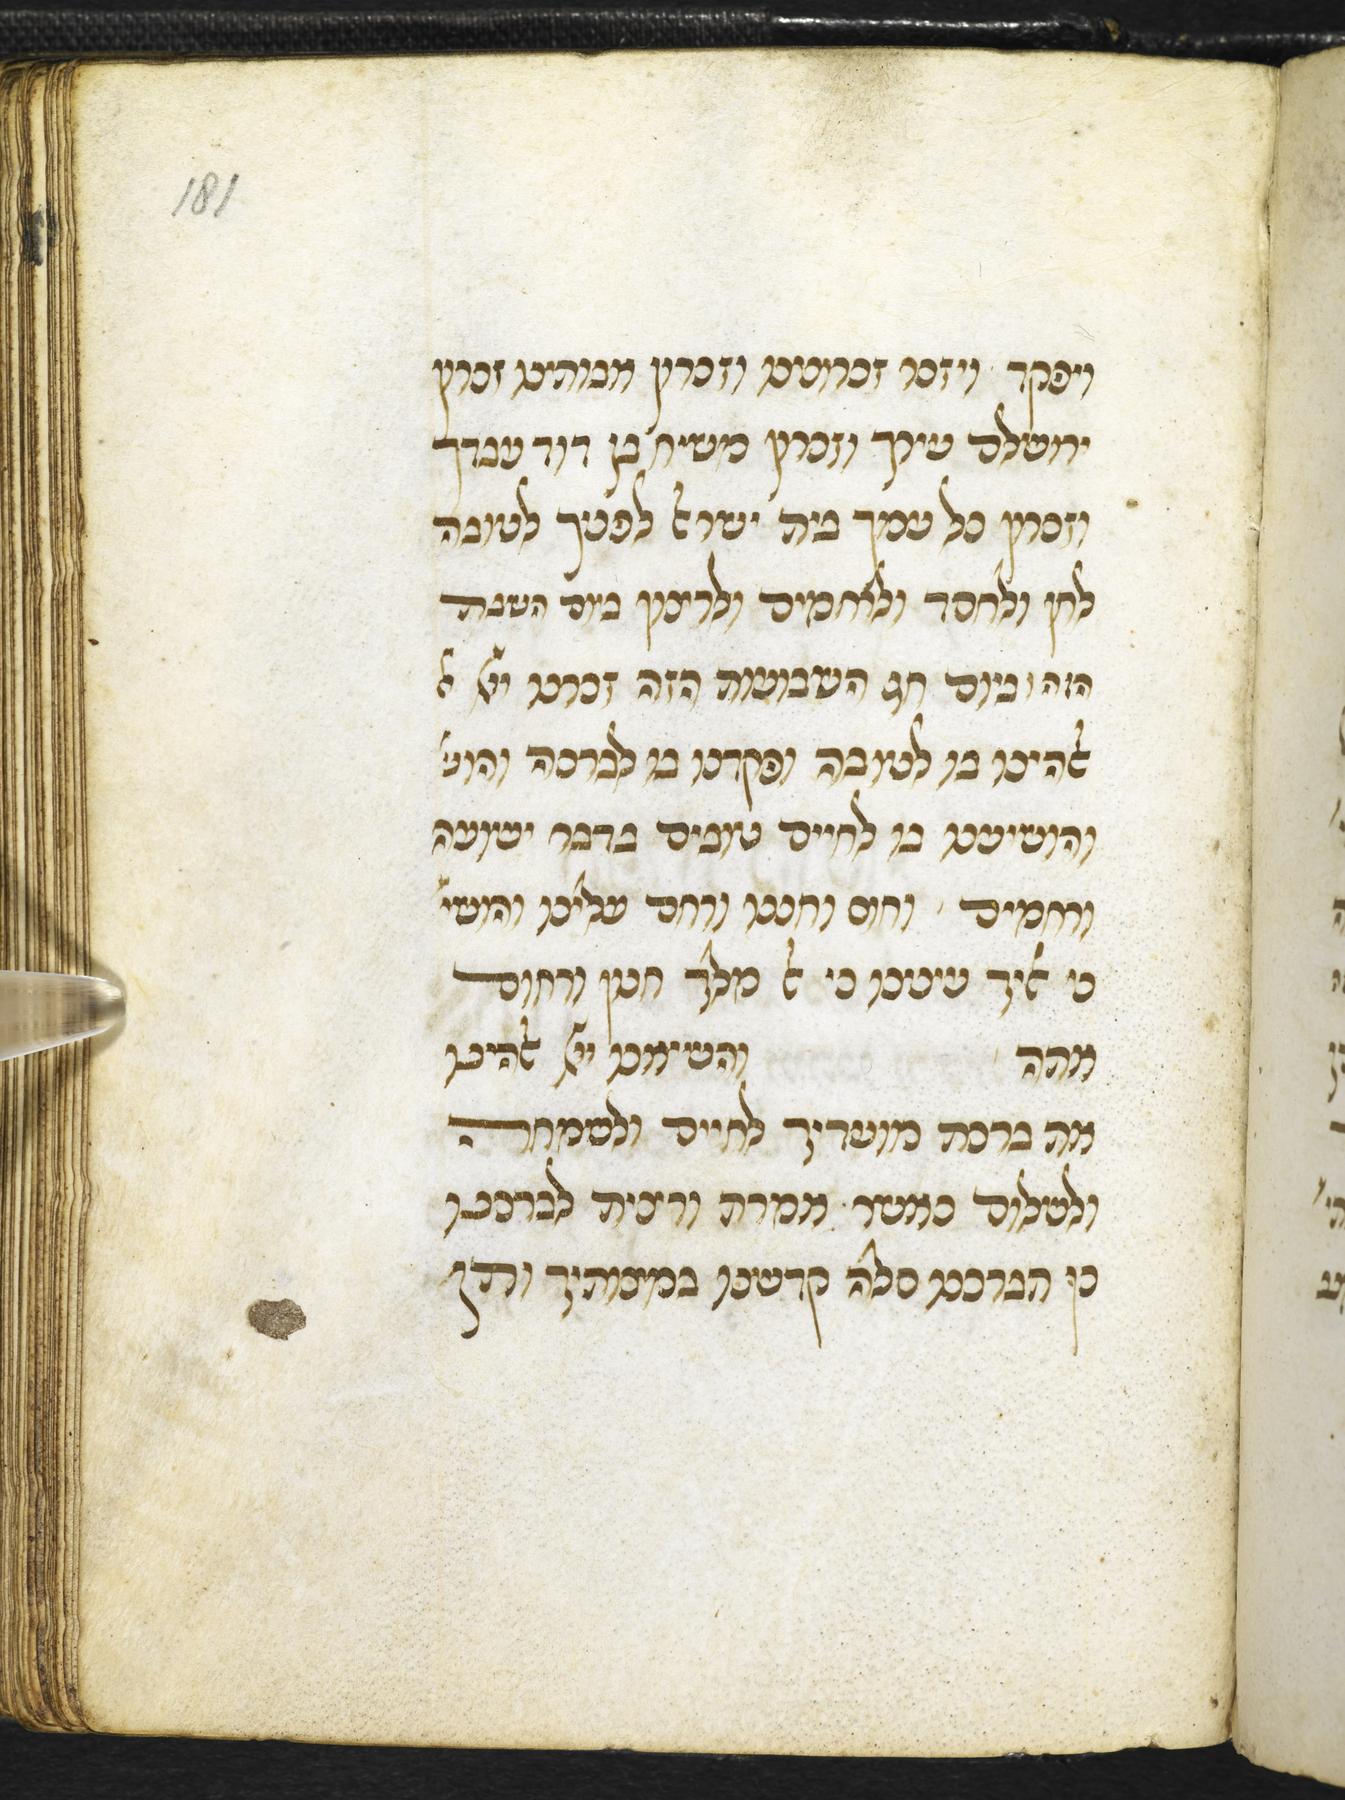 181
ויפקד ויזכר זכרונינו וזכרון אבותינו זכרון
ירושלם עירך וזכרון משיח בן דוד עבדך
וזכרון כל עמך בית ישראל לפניך לטובה
לחן ולחסד ולרחמים ולרצון ביום השבת
הזה וביום חג השבועות הזה זכרנו ייי א
אלהינו בו לטובה ופקדנו בו לברכה והוש׳
והושיענו בו לחיים טובים בדבר ישועה
ורחמים וחוס וחננו ורחם עלינו והושי׳
כי אליך עינינו כי אל מלך חנון ורחום
אתה והשיאנו ייי אלהינו
את ברכת מועדיך לחיים ולשמחה
ולשלום כאשר אמרת ורצית לברכנו
כן תברכנו סלה קדשנו במצותיך ותן